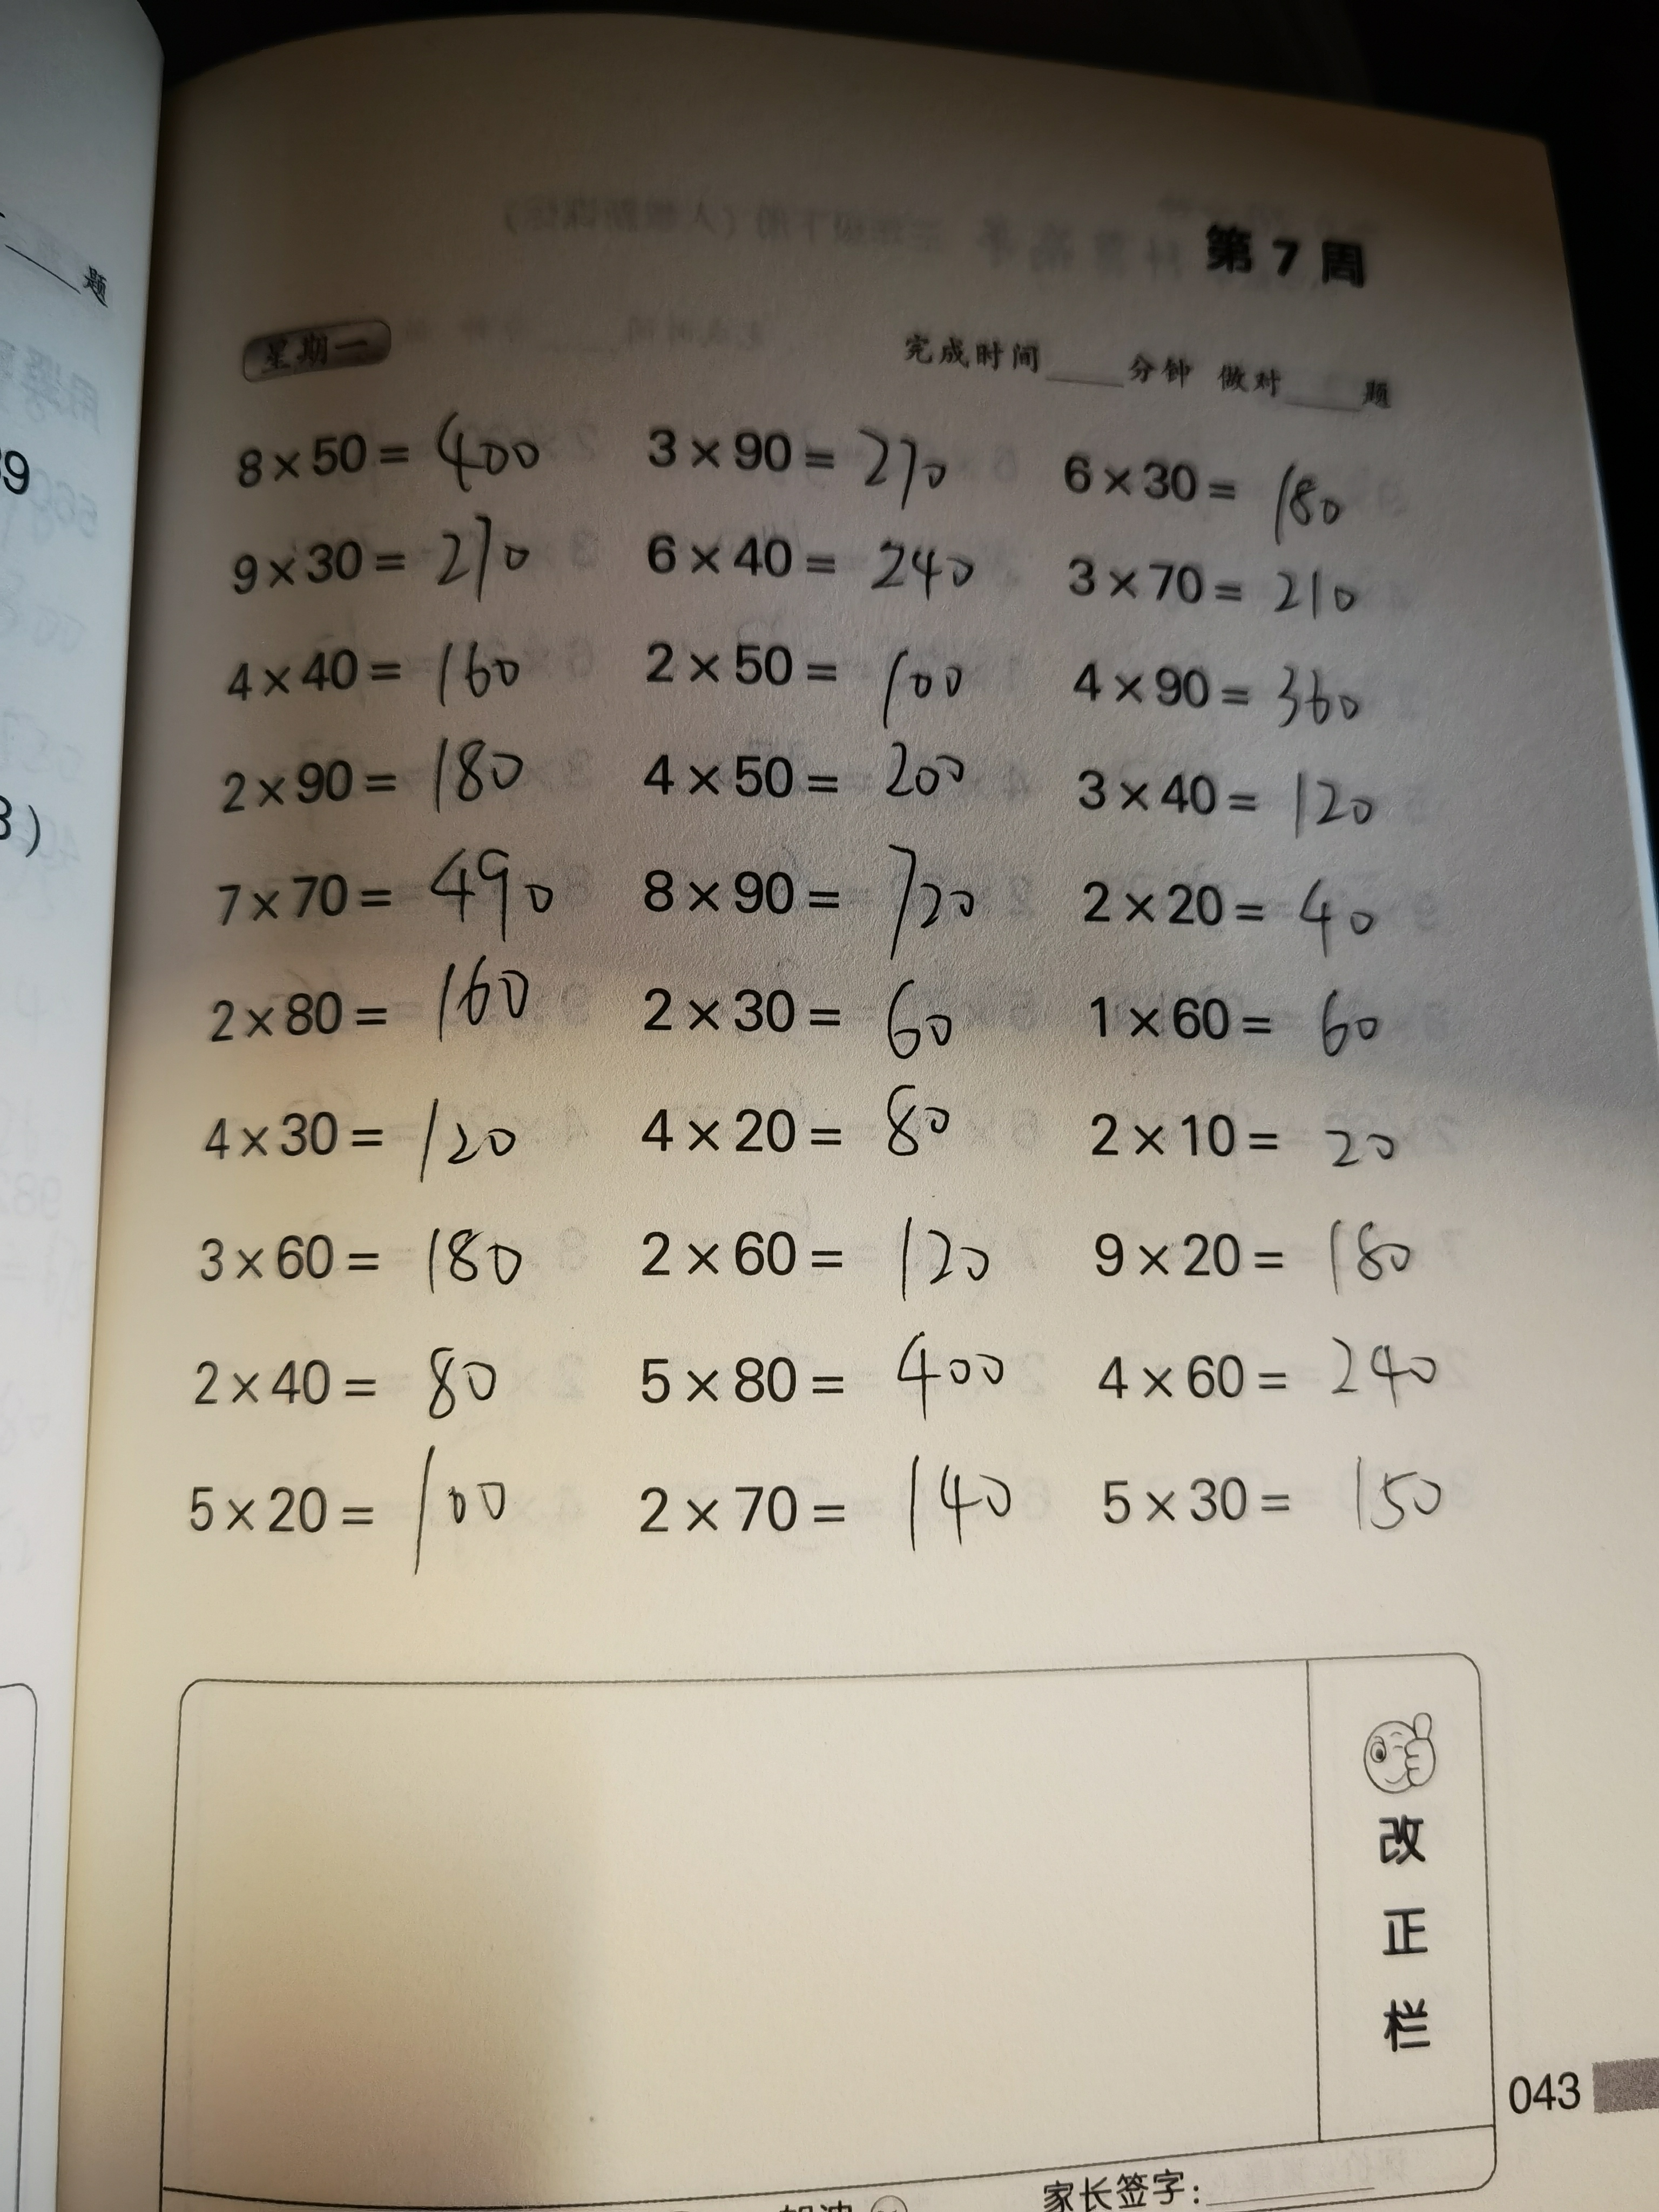 第7周
星期一 完成时间____分钟 做对____题
8×50= 400 3×90= 270 6×30= 180
9×30= 270 6×40= 240 3×70= 210
4×40= 160 2×50= 100 4×90= 360
2×90= 180 4×50= 200 3×40= 120
7×70= 490 8×90= 720 2×20= 40
2×80= 160 2×30= 60 1×60= 60
4×30= 120 4×20= 80 2×10= 20
3×60= 180 2×60= 120 9×20= 180
2×40= 80 5×80= 400 4×60= 240
5×20= 100 2×70= 140 5×30= 150
改正栏
043
家长签字:________
题